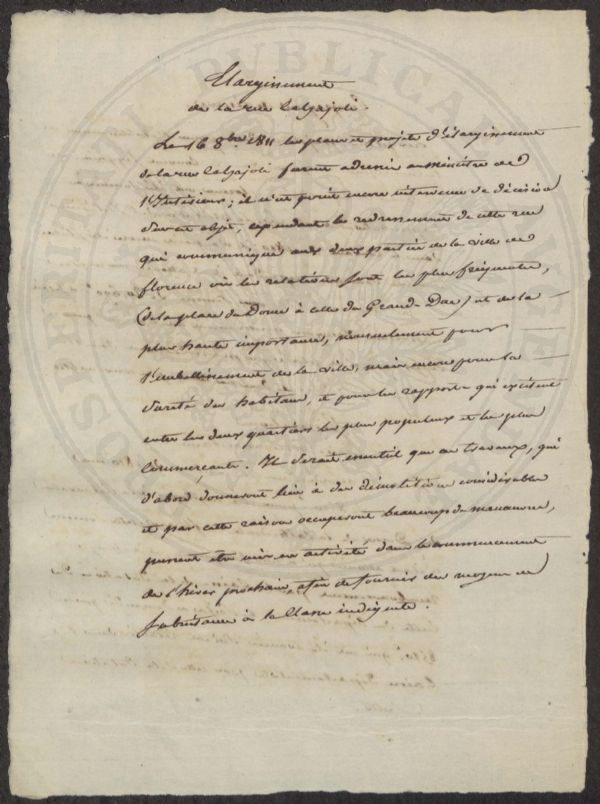 Elargissement
de la rue Calzajoli.
Le 16 8bre 1811 les plans et projets d'élargissement
de la rue Calzajoli furent adressés au Ministre de
l'Intérieur; il n'est point encore intervenu de décision
sur cet objet, cependant le redressement de cette rue
qui communique aux deux parties de la Ville de
florence où les relations sont les plus fréquentes,
(de la place du Dome à celle du Grand-Duc) est de la
plus haute importance, non seulement pour
l'embellissement de la Ville, mais encore pour la
Sureté des habitans, et pour les rapports qui existent
entre les deux quartiers les plus populeux et les plus
Commerçants. Il serait essentiel que ces travaux, qui
d'abord donneront lieu à des démolitions considérables
et par cette raison occuperont beaucoup de manœuvres,
pussent être mis en activité dans le commencement
de l'hiver prochain, afin de fournir des moyens de
Subsistance à la Classe indigente.